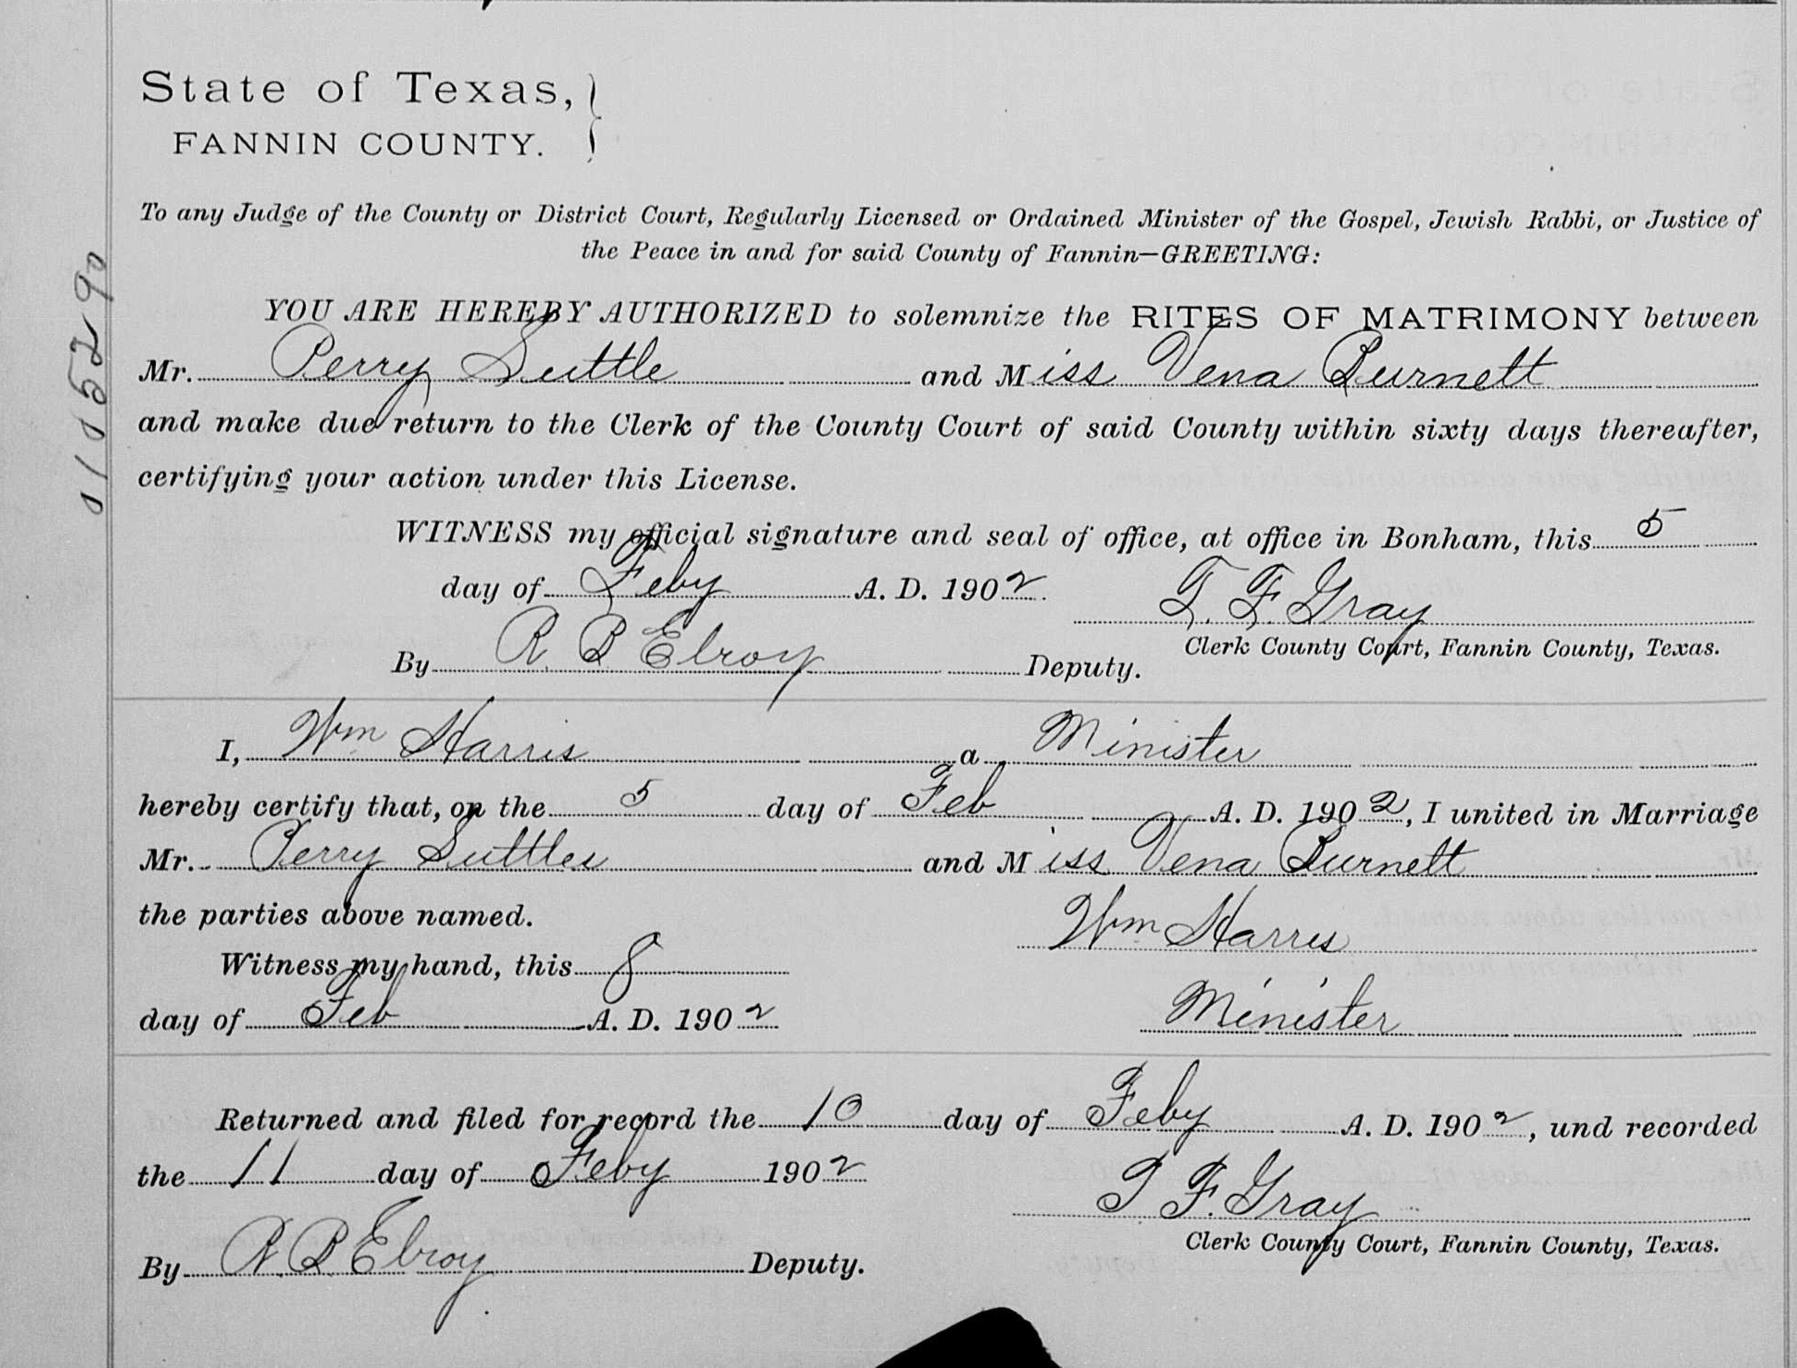 State of Texas,
FANNIN COUNTY.
To any Judge of the County or District Court, Regularly Licensed or Ordained Minister of the Gospel, Jewish Rabbi, or Justice of
the Peace in and for said County of Fannin—GREETING:
YOU ARE HEREBY AUTHORIZED to solemnize the RITES OF MATRIMONY between
Mr. Perry Suttle and Miss Vena Burnett
and make due return to the Clerk of the County Court of said County within sixty days thereafter,
certifying your action under this License.
WITNESS my official signature and seal of office, at office in Bonham, this 5
day of Feby A. D. 1902.
T. F. Gray
Clerk County Court, Fannin County, Texas.
By R. B Elroy Deputy.
I, Wm Harris a Minister
hereby certify that, on the 5 day of Feb A. D. 1902, I united in Marriage
Mr. Perry Suttles and Miss Vena Burnett
the parties above named.
Wm Harris
Witness my hand, this 8
day of Feb A. D. 1902
Minister
Returned and filed for record the 10 day of Feby A. D. 1902, und recorded
the 11 day of Feby 1902
T F. Gray
Clerk County Court, Fannin County, Texas.
By R. B. Elroy Deputy.